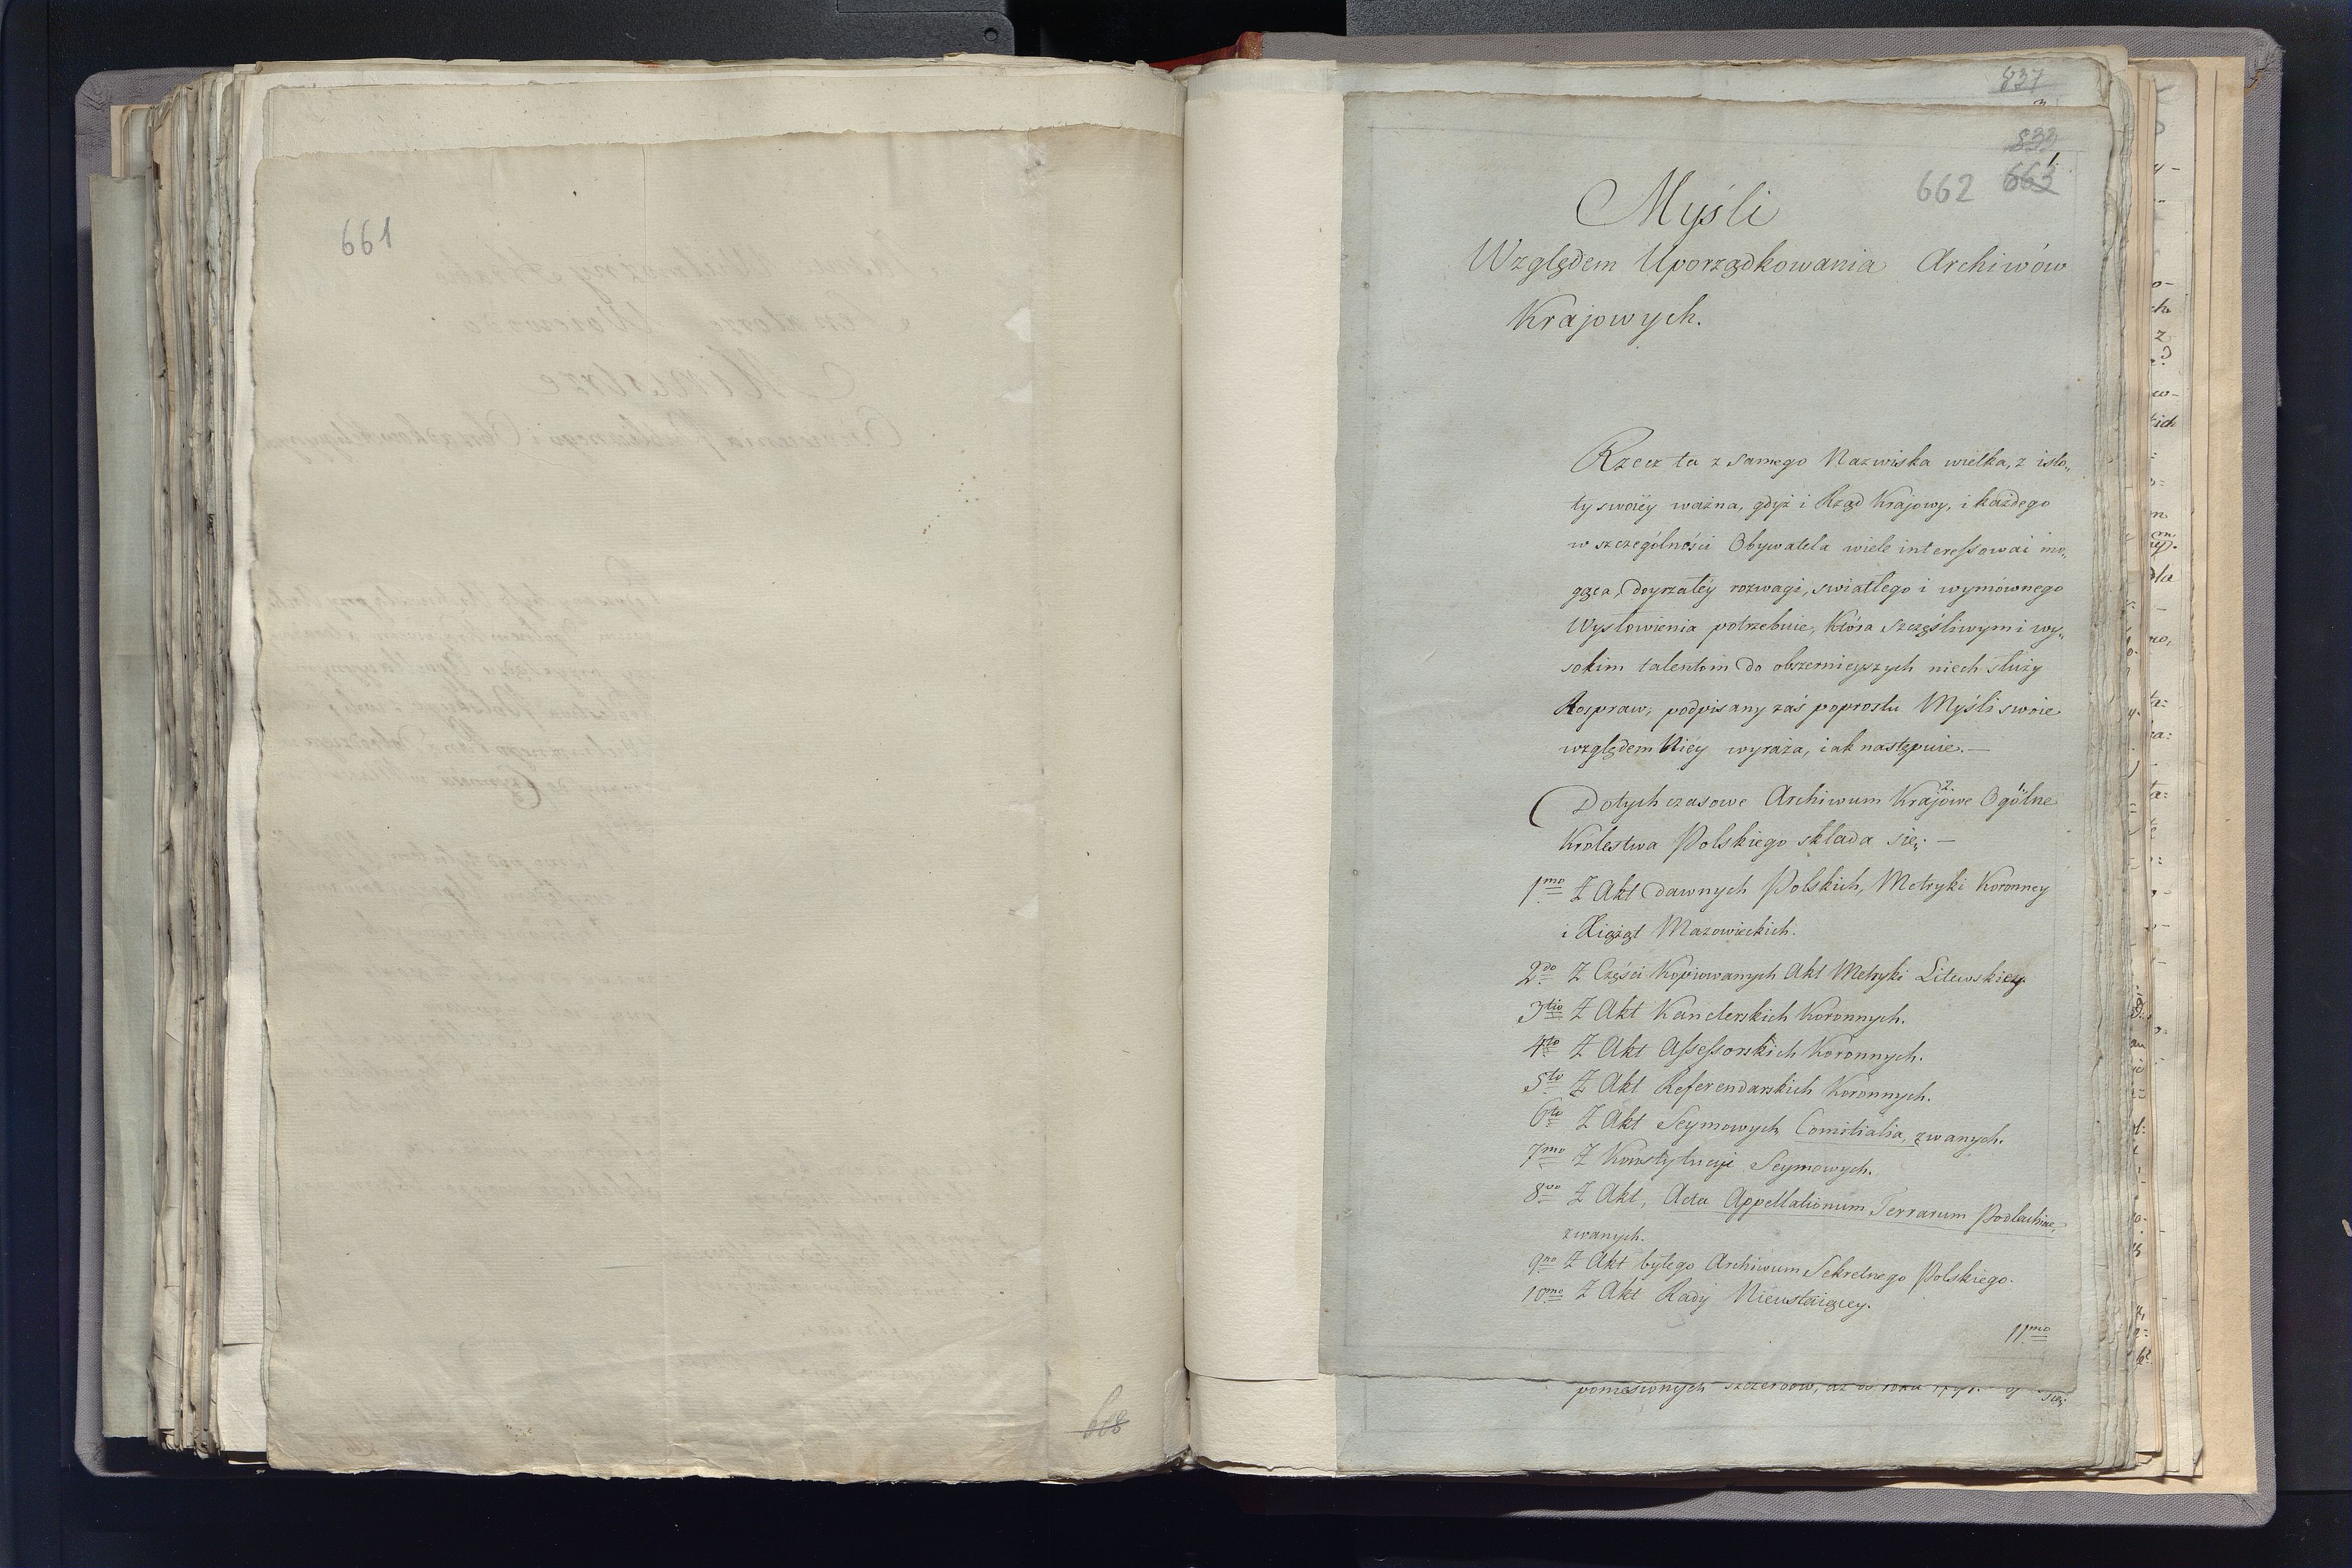 661
668
837
838
662 663
1
Myśli
Względem Uporządkowania Archiwów
Krajowych.
Rzecz ta z samego Nazwiska wielka, z isto„
ty swoiéy ważna, gdyż i Rząd Krajowy, i każdego
w szczególności Obywatela wiele interessować mo„
gąca, doyrzałéy rozwagi, swiatłego i wymównego
Wysłowienia potrzebuie, Która Szczęśliwym i wy„
sokim talentom do obszernieyszych niech służy
Rospraw, podpisany zaś poprostu Myśli swoie
względem Niéy wyraża, iak następuie. —
Dotychczasowe Archiwum Krajowe Ogólne
Królestwa Polskiego składa się: —
1mo Z Akt dawnych Polskich, Metryki Koronney
i Xiążąt Mazowieckich.
2do Z Części Kopiowanych Akt Metryki Litewskiey
3tio Z Akt Kanclerskich Koronnych.
4to Z Akt Assessorskich Koronnych.
5to Z Akt Referendarskich Koronnych.
6to Z Akt Seymowych Comitialia, zwanych.
7mo Z Konstytucyi Seymowych.
8vo Z Akt, Acta Appellationum Terrarum Podlachiae,
zwanych.
9no Z Akt byłego Archiwum Sekretnego Polskiego.
10mo Z Akt Rady Nieustaiącey.
11mo